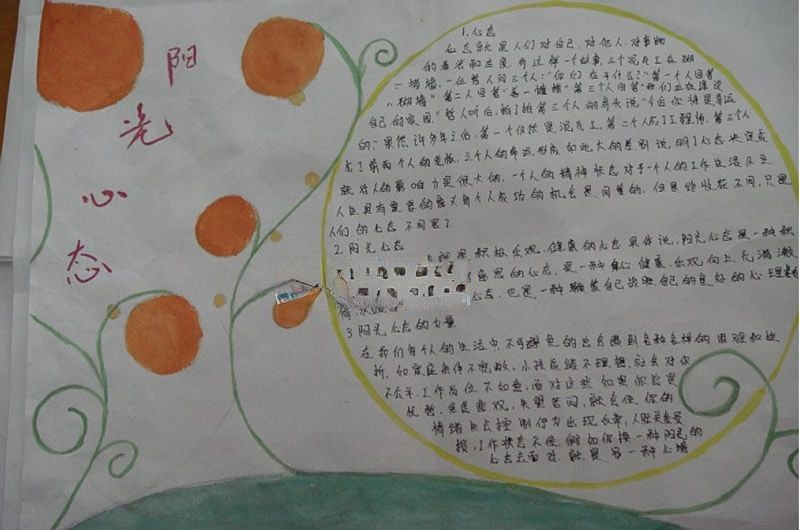 阳光心态
1.心态
心态就是人们对自己、对他人、对事物
的看法和态度。有这样一个故事,三个泥瓦工在砌
一堵墙,一位哲人问三个人:"你们在干什么?"第一个人回答
"砌墙"第二人回答"盖一幢楼"第三个人回答"我们正在建设
自己的家园"哲人听后,拍了拍第三个人的肩头说"今后你将是幸运
的:"果然,许多年之后,第一个仍然是泥瓦工,第二个成了工程师,第三个人
成了前两个人的老板,三个人的命运形成如此大的差别说明了心态决定
就对人的影响力是很大的,一个人的精神状态对于一个人的工作生活
人生具有重要的意义每个人成功的机会是同等的,但是收获不同,只是
人们的心态不同罢了
2.阳光心态
是积极、乐观、健康的心态具体说,阳光心态是一种积
感恩的心态,是一种身心健康、乐观向上,充满激
心态,也是一种
自己的良好的心理
3.阳光心态的力量
在我们每个人的生活中,不可避免的出会遇到各种各样的困难和挫
折,如家庭条件不宽敞,小孩成绩不理想,社会对你
不公平,工作岗位不如意,面对这些如果你总是
忧愁、焦虑悲观、失望苦闷,就会使你的
情绪失去控制行为出现反常,人际关系受
损,工作状态不佳,假如你换一种阳光的
心态去面对,就是另一种心境